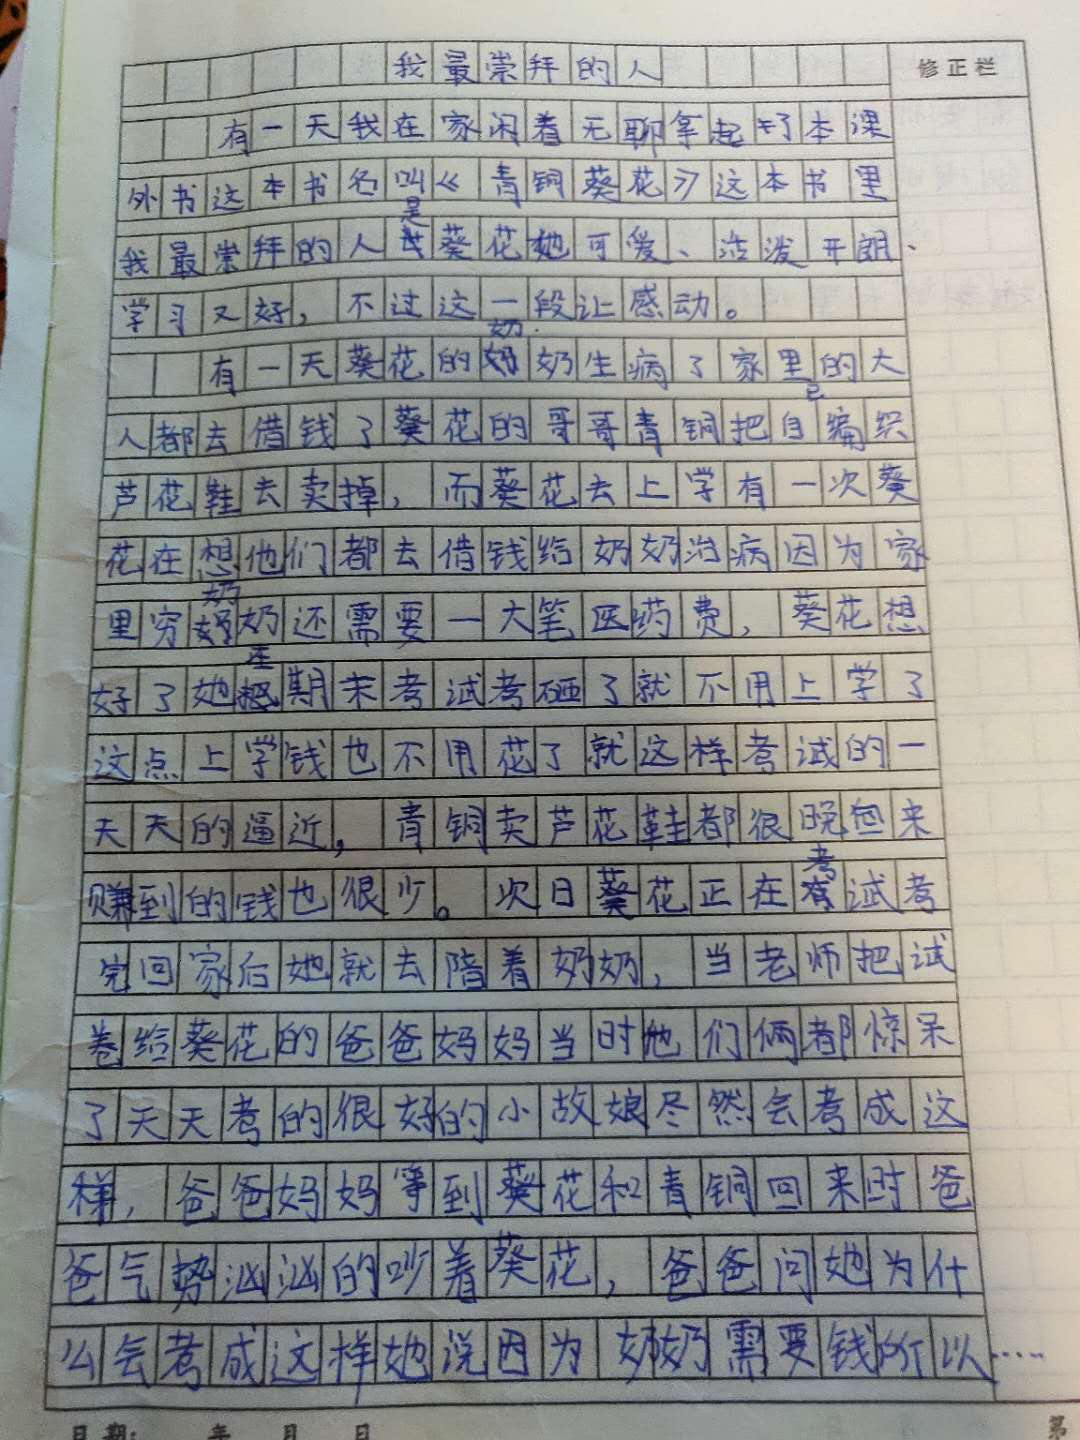 我最崇拜的人
修正栏
有一天我在家闲着无聊拿起了本课
外书这本书名叫《青铜葵花》这本书里
我最崇拜的人是葵花她可爱、活泼开朗、
学习又好,不过这一段让感动。
有一天葵花的奶奶生病了家里的大
人都去借钱了葵花的哥哥青铜把自己编织
芦花鞋去卖掉,而葵花去上学有一次葵
花在想他们都去借钱给奶奶治病因为家
里穷奶奶还需要一大笔医药费,葵花想
好了她在期末考试考砸了就不用上学了
这点上学钱也不用花了就这样考试的一
天天的逼近,青铜卖芦花鞋都很晚回来
赚到的钱也很少。次日葵花正在考试考
完回家后她就去陪着奶奶,当老师把试
卷给葵花的爸爸妈妈当时他们俩都惊呆
了天天考的很好的小故娘尽然会考成这
样,爸爸妈妈等到葵花和青铜回来时爸
爸气势汹汹的吵着葵花,爸爸问她为什
么会考成这样她说因为奶奶需要钱所以……
日期: 年 月 日
第